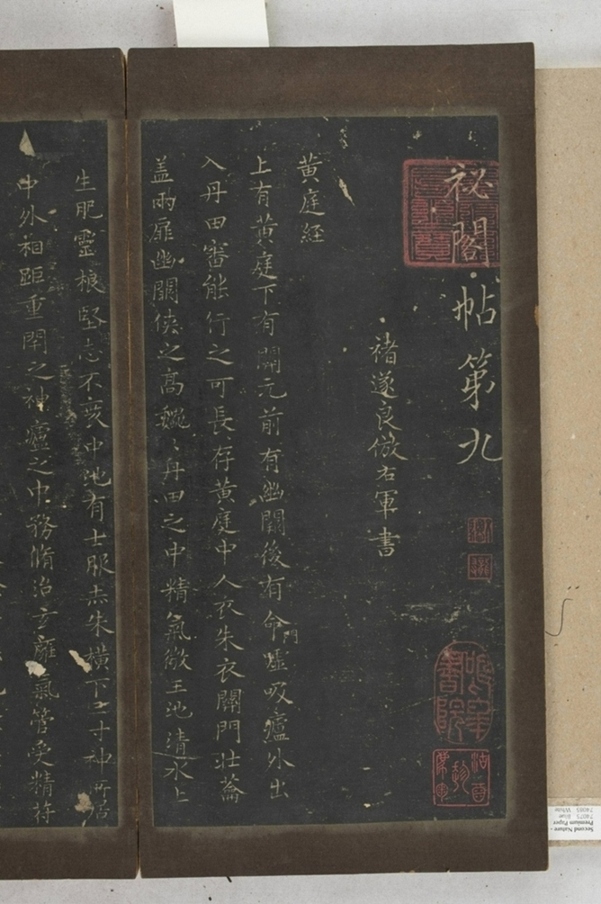 祕閣帖第九
褚遂良倣右軍書
黄庭經
上有黄庭下有關元前有幽闕後有命門嘘吸廬外出
入丹田審能行之可長存黄庭中人衣朱衣關門壯蘥
盖兩扉幽闕俠之高巍〻丹田之中精氣微玉池清水上
生肥靈根堅志不衰中池有士服赤朱横下三寸神所居
中外相距重閉之神廬之中務脩治玄廱氣管受精符
Second Nature -
Premium Paper